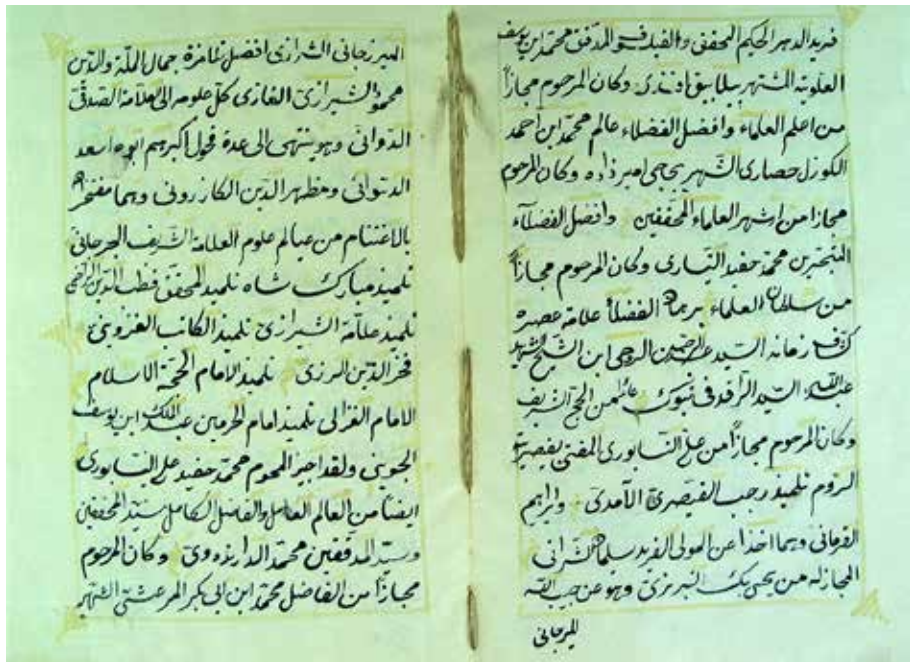 فريد الدهر الحكيم المحقق والفيلسوف المدقق محمد ابن يوسف
العلويه الشهير ببلابيق اوفندى وكان المرحوم مجازاً
من اعلم العلماء وافضل الفضلاء عالم محمد ابن احمد
الكوزل حصارى الشهير بحجى امير زاده وكان المرحوم
مجازا من اشهر العلماء المحققين وافضل الفضلآء
المتبحرين محمد حفيد النيسارى وكان المرحوم مجازاً
من سلطان العلماء برهان الفضلأ علامة عصره
زمانه السيد الروحى ابن الشيخ الشهيد
عبد الله السيد الراقد فى تبوك عائدا من الحج الشريف
وكان المرحوم مجازاً من على النسابورى المفتى بقيصرية
الروم تلميذ رجب القيصرى الآمدى وابراهيم
القرمانى وهما اخذا عن المولى الفريد سلمان الشرانى
المجاز له من يحيى بك التبريزى وهو عن حبيب الله
الميرجانى
الميرزجانى الشرازى افضل تلامذة جمال الملة والدين
محمود الشيرازى الغازى كل علومه الى العلامة الصدقى
الدوانى وهو ينتهى الى عدة فحول اكبرهم ابوه اسعد
الدتوانى ومظهر الدين الكازرونى وهما مفتخران
بالاغتنام من عيالم علوم العلامة الشريف الجرجانى
تلميذ مبارك شاه تلميذ المحقق قطب الدين الرازى
تلميذ علامة الشيرازى تلميذ الكاتب القزوينى
فخر الدين الرزى تلميذ الامام الحجة الاسلام
الامام الغزالى تلميذ امام الحرمين عبد الملك ابن يوسف
الجوينى ولقد اجيز المحوم محمد حفيد على النسابورى
ايضا من العالم العامل والفاضل الكامل سند المحققين
وسيد المدققين محمد الدارندوى وكان المرحوم
مجازاً من الفاضل محمد ابن ابى بكر المرعشى الشهير